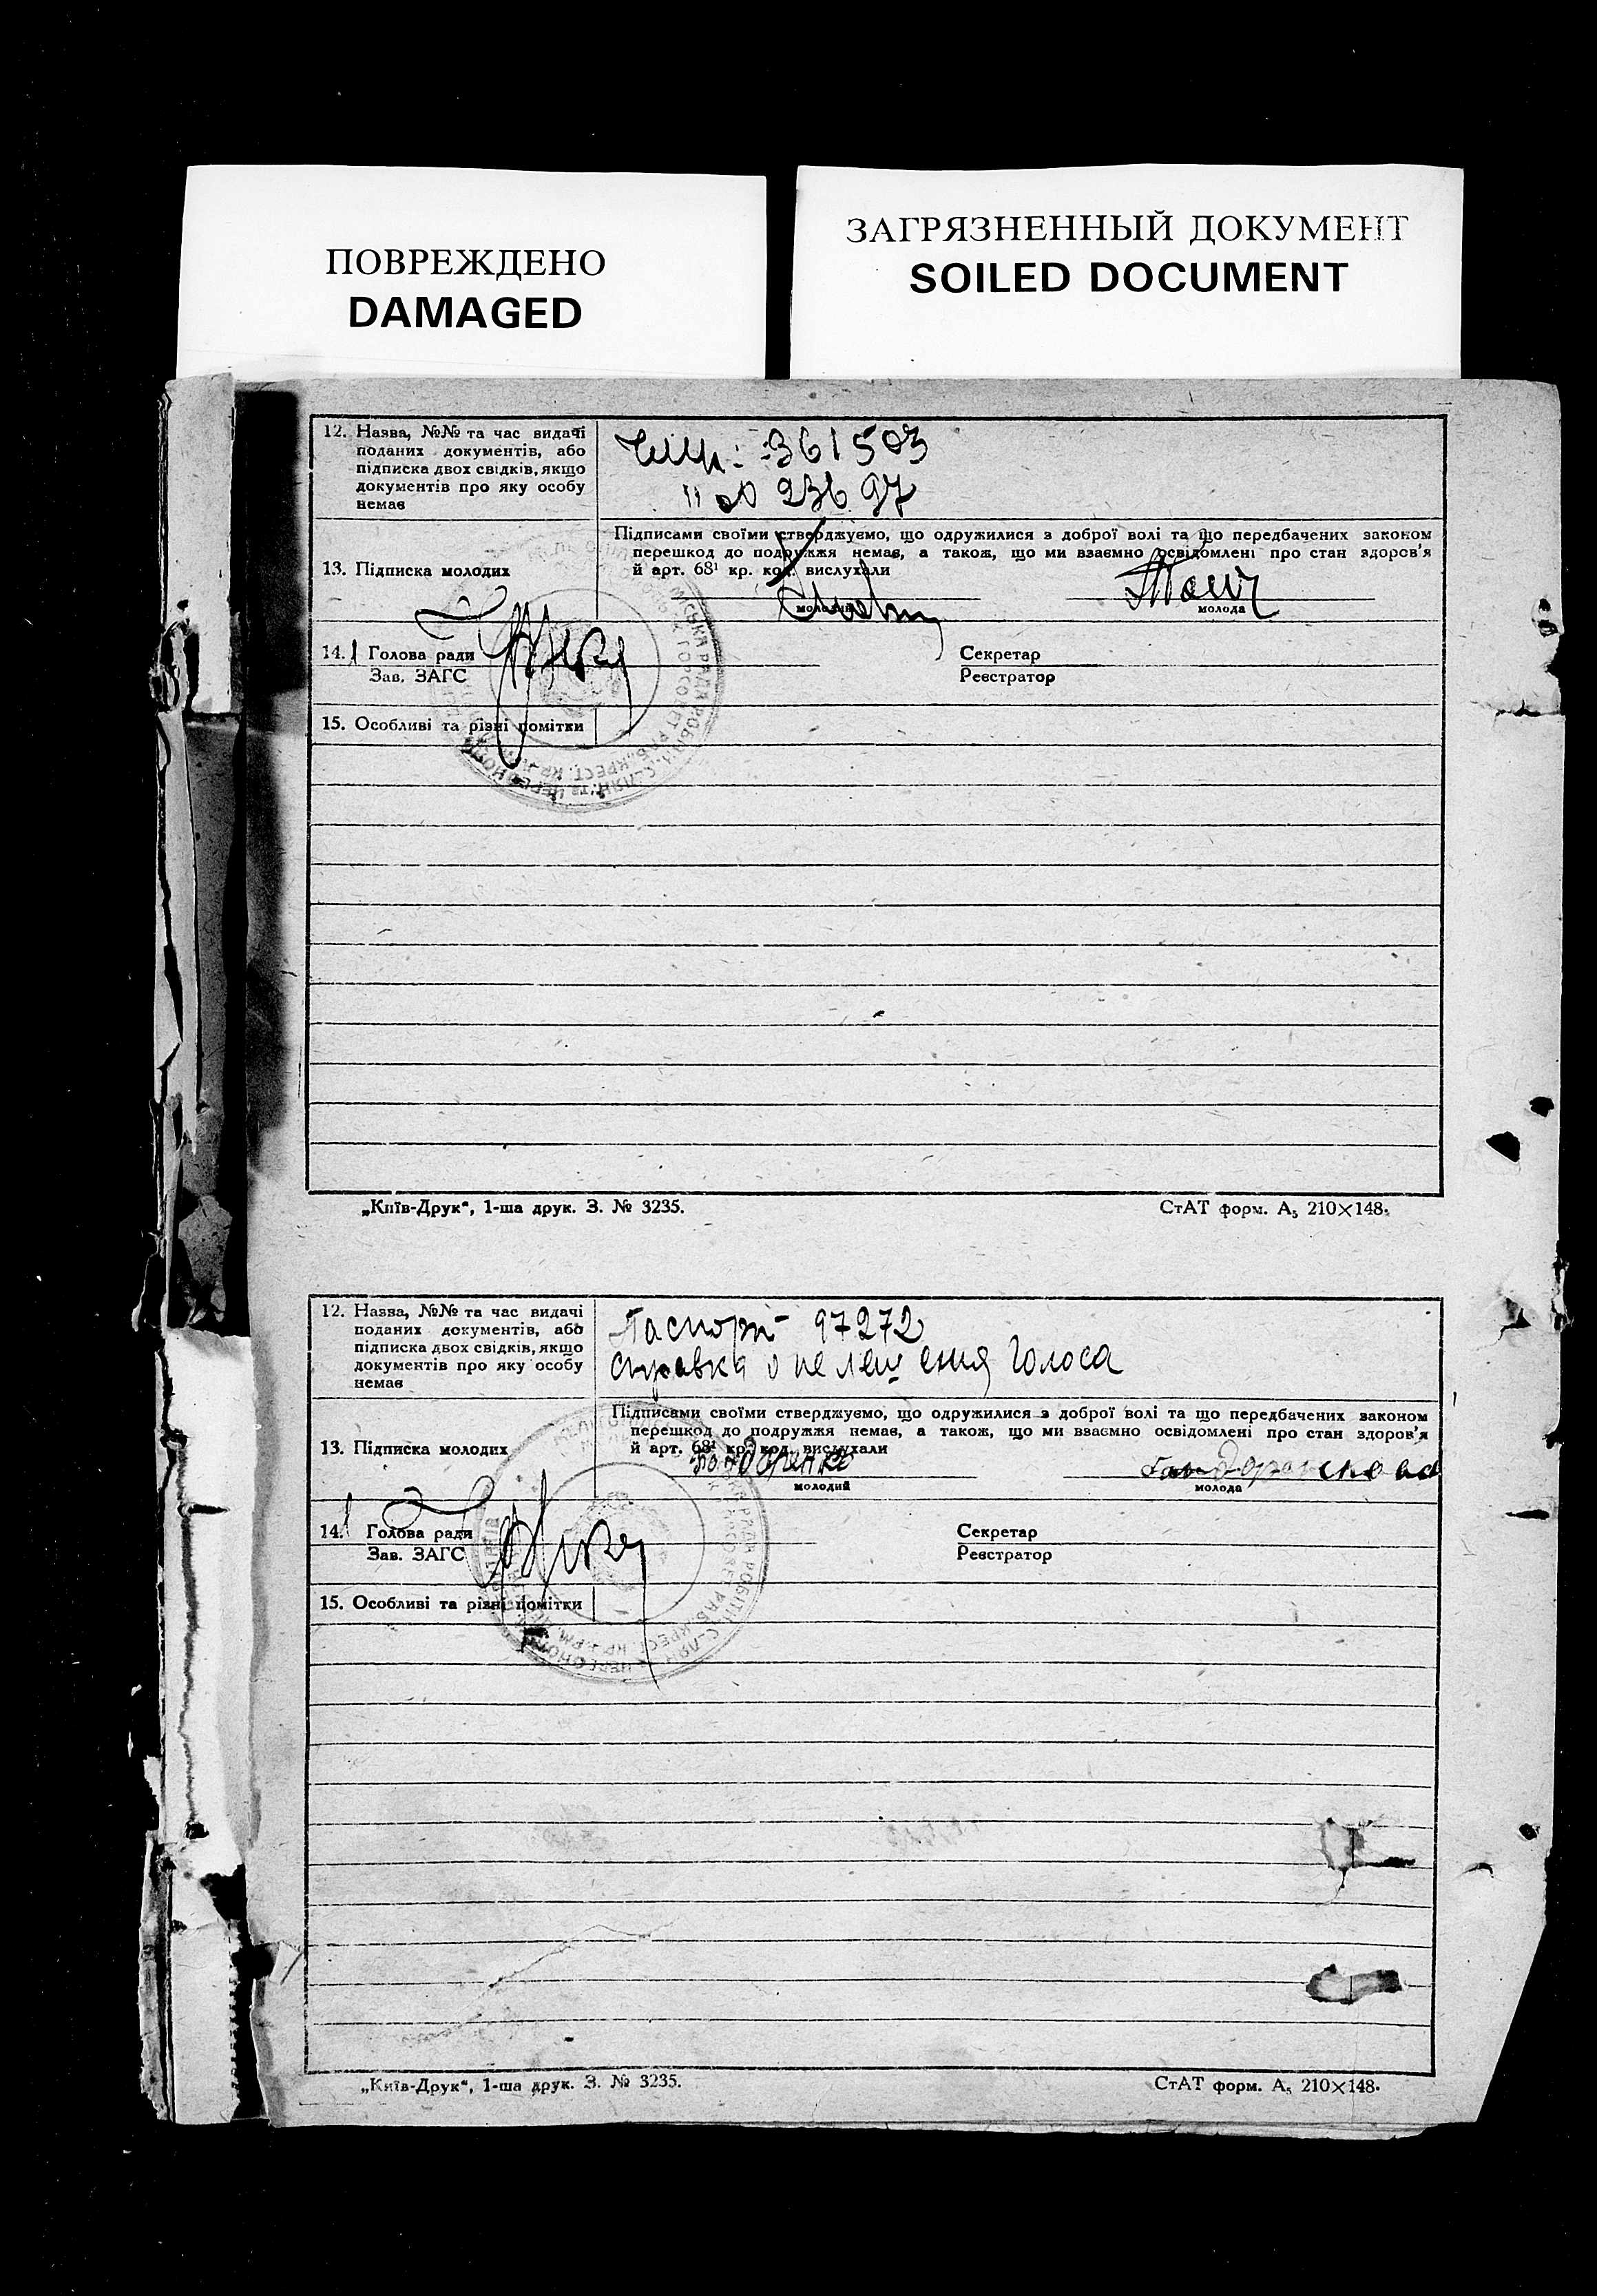 ПОВРЕЖДЕНО
DAMAGED
ЗАГРЯЗНЕННЫЙ ДОКУМЕНТ
SOILED DOCUMENT
12. Назва, №№ та час видачі
поданих документів, або
підписка двох свідків, якщо
документів про яку особу
немає
361503
23697
Підписами своїми стверджуємо, що одружилися з доброї волі та що передбачених законом
перешкод до подружжя немає, а також, що ми взаємно освідомлені про стан здоров'я
й арт. 68¹ кр. код. вислухали
13. Підписка молодих
молодий
молода
14. Голова ради
Зав. ЗАГС
Секретар
Реєстратор
15. Особливі та різні помітки
„Київ-Друк“, 1-ша друк. З. № 3235.
СтАТ форм. А₅ 210×148.
12. Назва, №№ та час видачі
поданих документів, або
підписка двох свідків, якщо
документів про яку особу
немає
Паспорт 97272
справка о не лешения голоса
Підписами своїми стверджуємо, що одружилися з доброї волі та що передбачених законом
перешкод до подружжя немає, а також, що ми взаємно освідомлені про стан здоров'я
й арт. 68¹ кр. код. вислухали
13. Підписка молодих
Бондаренко
молодий
молода
14. Голова ради
Зав. ЗАГС
Секретар
Реєстратор
15. Особливі та різні помітки
„Київ-Друк“, 1-ша друк. З. № 3235.
СтАТ форм. А₅ 210×148.